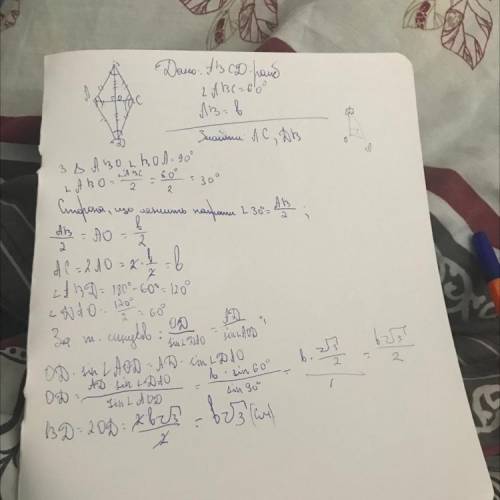 Дано: АВСД-ромб
∠ABC=60°
AB = b
Знайти AC, ДВ
З Δ ABO, ∠BOA=90°
∠ABO = ∠ABC/2 = 60°/2 = 30°
Сторона, що лежить напроти ∠30° = AB/2 ;
AB/2 = AO = b/2
AC = 2AO = 2·b/2 = b
= 180°-60° = 120°
120°/2 = 60°
За т. синусів: OD/sin∠DAO = AD/sin∠AOD ;
OD · sin∠AOD = AD · sin∠DAO
OD = AD sin∠DAO / sin∠AOD = b · sin 60° / sin 90° = b · √3/2 / 1 = b√3/2
BD = 2OD = 2b√3/2 = b√3 (см)